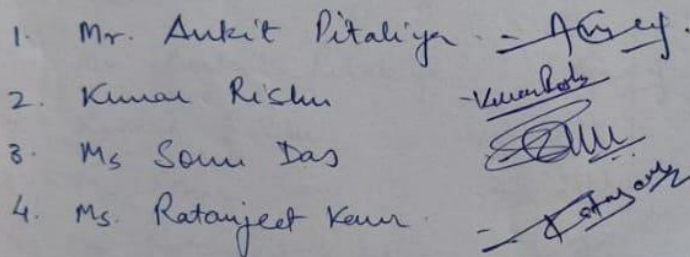 1. Mr. Ankit Pitaliya
2. Kumar Rishu
3. Ms Somu Das
4. Ms. Ratanjeet Kaur